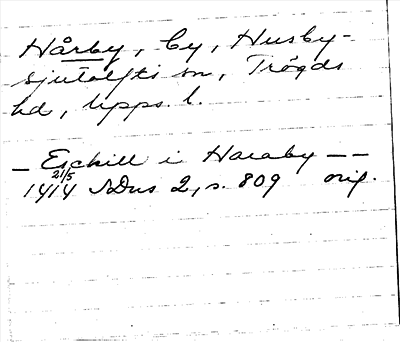 Hårby, by, Husby-
sjutolfts sn, Trögds
hd, Upps. l.
– Eschill i Haraby – –
21/5
1414 SDns 2, s. 809 orig.